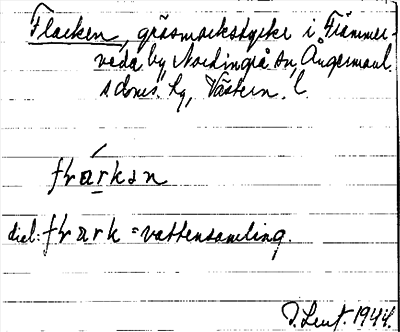 Flarken, gräsmarkstycke i Främmer-
veda by, Nordingrå sn, Ångermanl.
s doms. hg, Västern. l.
flarkən
dial: flark = vattensamling.
1944.